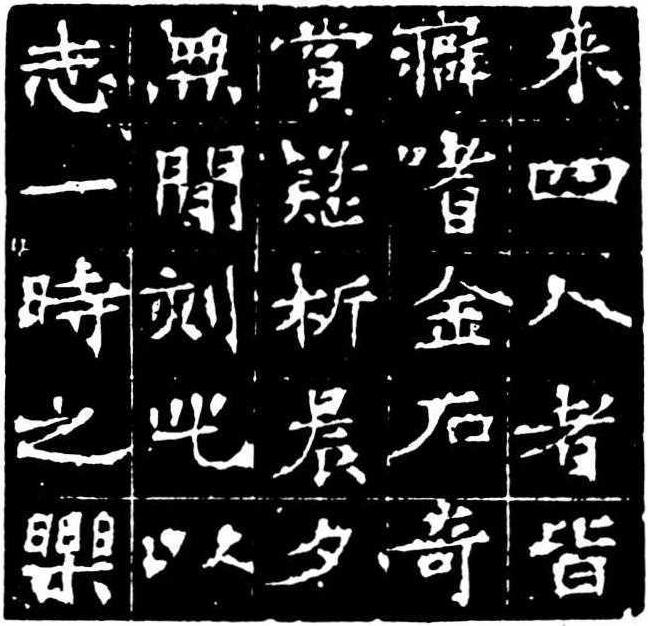 来四人者皆
癖嗜金石奇
賞疑析晨夕
無閒刻此以
志一時之樂